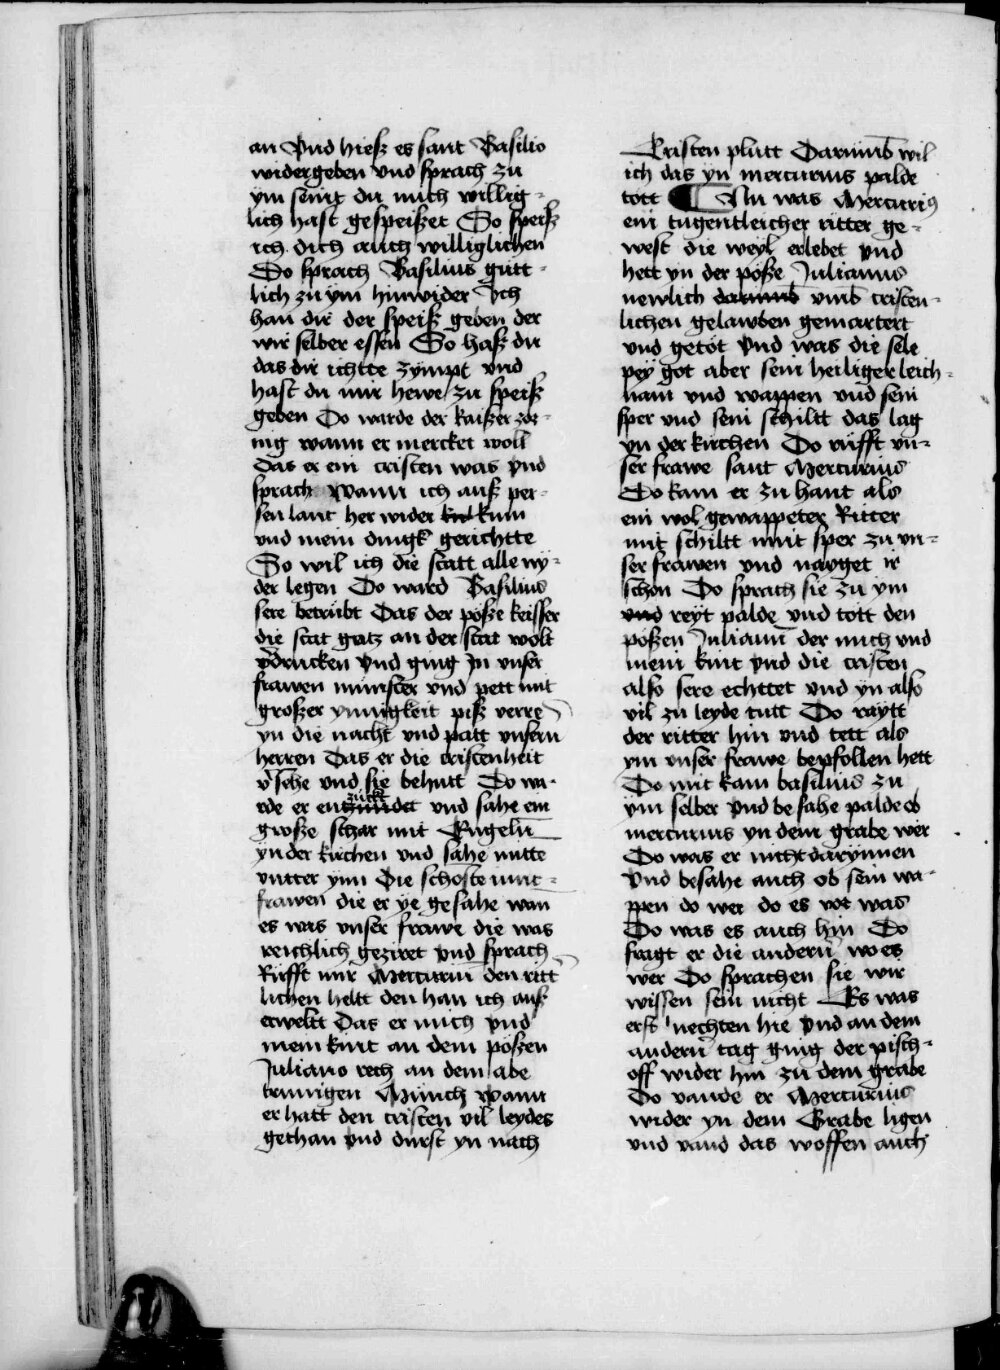 an Vnd hiesz es sant Basilio
widergeben vnd sprach zu
ym seint du mich willig-
lich hast gespeiszet So speisz
ich dich auch williglichen
Do sprach Basilius gütt-
lich zu ym hinwider Ich
han dir der speisz geben der
wir selber essen So hasz du
das dir ichtte zympt vnd
hast du mir hewe zu speisz
geben Do warde der kaiszer zor-
nig wann er mercket woll
das er ein cristen was vnd
sprach Wann ich ausz per-
sen lant her wider kum
vnd mein dingk gerichtte
So wil ich die statt alle ny-
der legen Do ward Basilius
sere betrübt Das der pösze keisser
die stat gantz an der stat wolt
v̄drucken Vnd ging In vnser
frawen münster vnd pett mit
groszer ynnigkeit pisz verre
yn die nacht vnd patt vnsern
herren Das er die cristenheit
v̄sehe vnd sie behutt Do wa-
rde er entzuckt vnd sahe ein
grosze schar mit Engeln
yn der kirchen vnd sahe mitte
vntter ynn Die schoste iunc-
frawen die er ye gesahe wan
es was vnser frawe die was
reichlich geziret vnd sprach
Rüfft mir Mercuriū den ritt
lichen heltt den han ich ausz
erweltt Das er mich vnd
mein kint an dem pöszen
Juliano rech an dem abe
trunnigen Münch Wann
er hatt den cristen vil leydes
gethan vnd durst yn nach
Cristen plutt Darumb wil
ich das yn mercurius palde
tött ¶ Nu was Mercurius
ein tugentleicher ritter ge-
west die weyl er lebet vnd
hett yn der pösze Julianus
newlich darumb vmb cristen-
lichen gelawben gemartert
vnd getöt Vnd was die sele
pey got aber sein heiliger leich-
nam vnd wappen vnd sein
sper vnd sein schiltt das lag
yn der kirchen Do rüfft vn-
ser frawe sant Mercurius
Do kam er zu hant als
ein wol gewappeter Ritter
mit schiltt mit sper zu vn-
ser frawen vnd nayget ir
schon Do sprach sie zu ym
vnd reyt palde vnd tött den
pöszen Julianū der mich vnd
mein kint vnd die cristen
also sere echttet vnd yn also
vil zu leyde tutt Do raytt
der ritter hin vnd tett als
ym vnser frawe bepfollen hett
Do mit kam basilius zu
ym selber Vnd besahe palde ob
mercurius yn dem grabe wer
Do was er nicht darynnen
Vnd besahe auch ob sein wa-
ppen do wer do es vor was
Do was es auch hin Do
fragt er die andern wo es
wer Do sprachen sie wir
wissen sein nicht Es was
erst nechten hie Vnd an dem
andern tag ging der pisch-
off wider hin zu dem grabe
Do vande er Mercurius
wider yn dem Grabe ligen
vnd vand das woffen auch